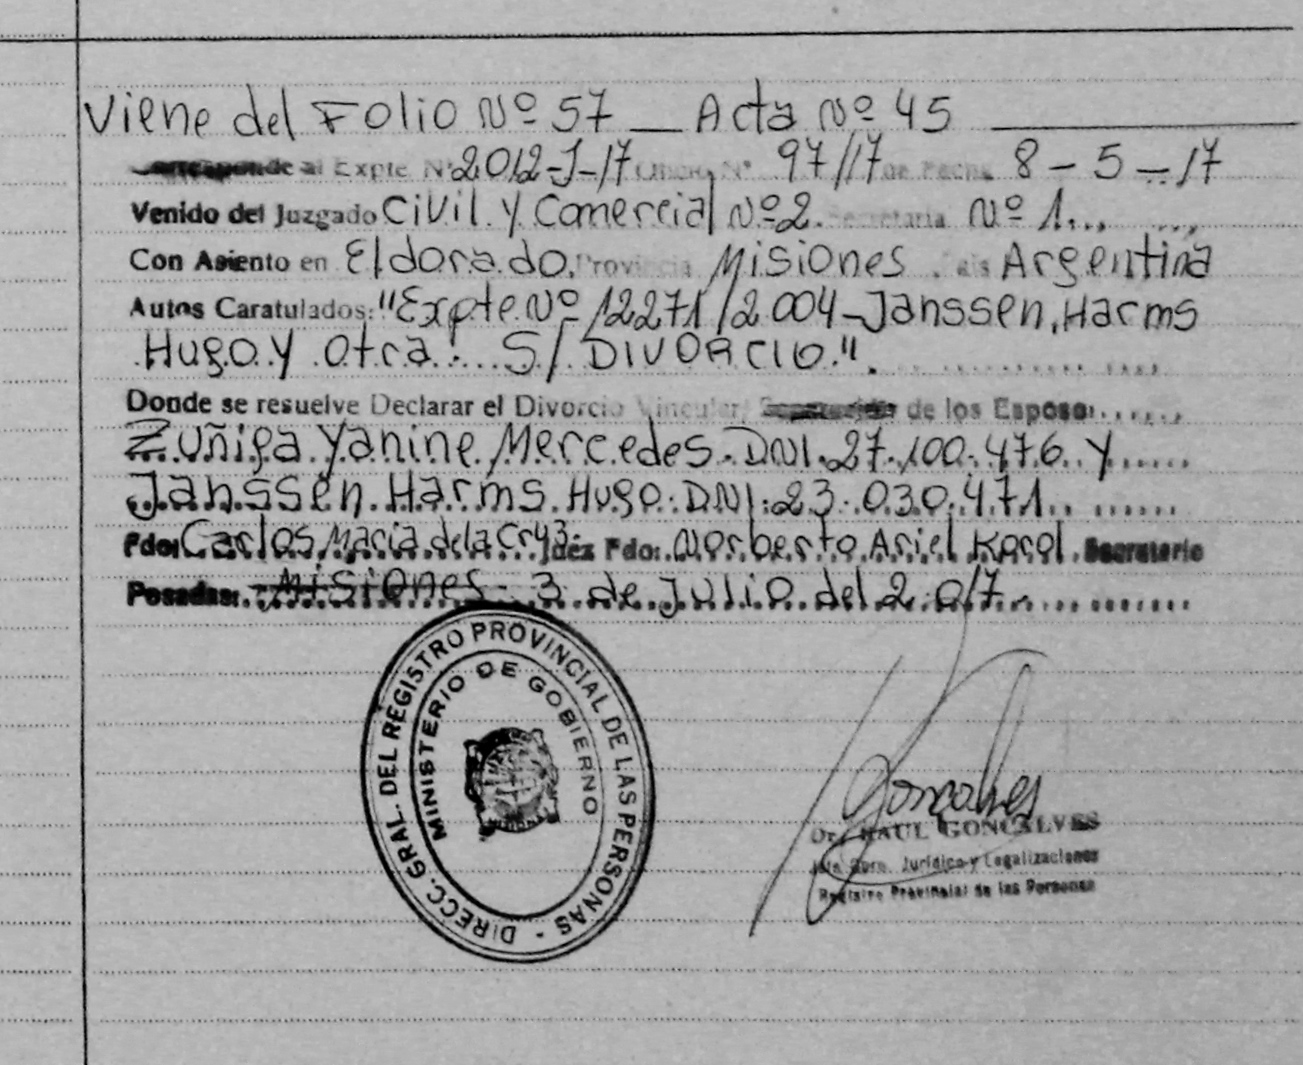 Viene del Folio Nº 57 __ Acta Nº 45
Corresponde al Expte Nº 2012-J-17 Oficio Nº 97/17 de Fecha 8-5-17
Venido del Juzgado Civil y Comercial Nº 2. Secretaria Nº 1...
Con Asiento en Eldorado. Provincia Misiones. País Argentina
Autos Caratulados: "Expte Nº 12271/2004-Janssen, Harms
Hugo y otra. S/ DIVORCIO".
Donde se resuelve Declarar el Divorcio Vincular/ de los Esposo
Zuñiga Yanine Mercedes. DNI. 27.100.476 y
Janssen Harms Hugo. DNI: 23.030.471.
Fdo: Carlos Maria de la Cruz. Juez Fdo: Norberto Ariel Korol. Secretario
Posadas: Misiones - 3 de Julio del 2.017.
DIRECC. GRAL. DEL REGISTRO PROVINCIAL DE LAS PERSONAS -
MINISTERIO DE GOBIERNO
Goncalves
Dr. RAUL GONCALVES
Jurídico y Legalizaciones
Registro Provincial de las Personas